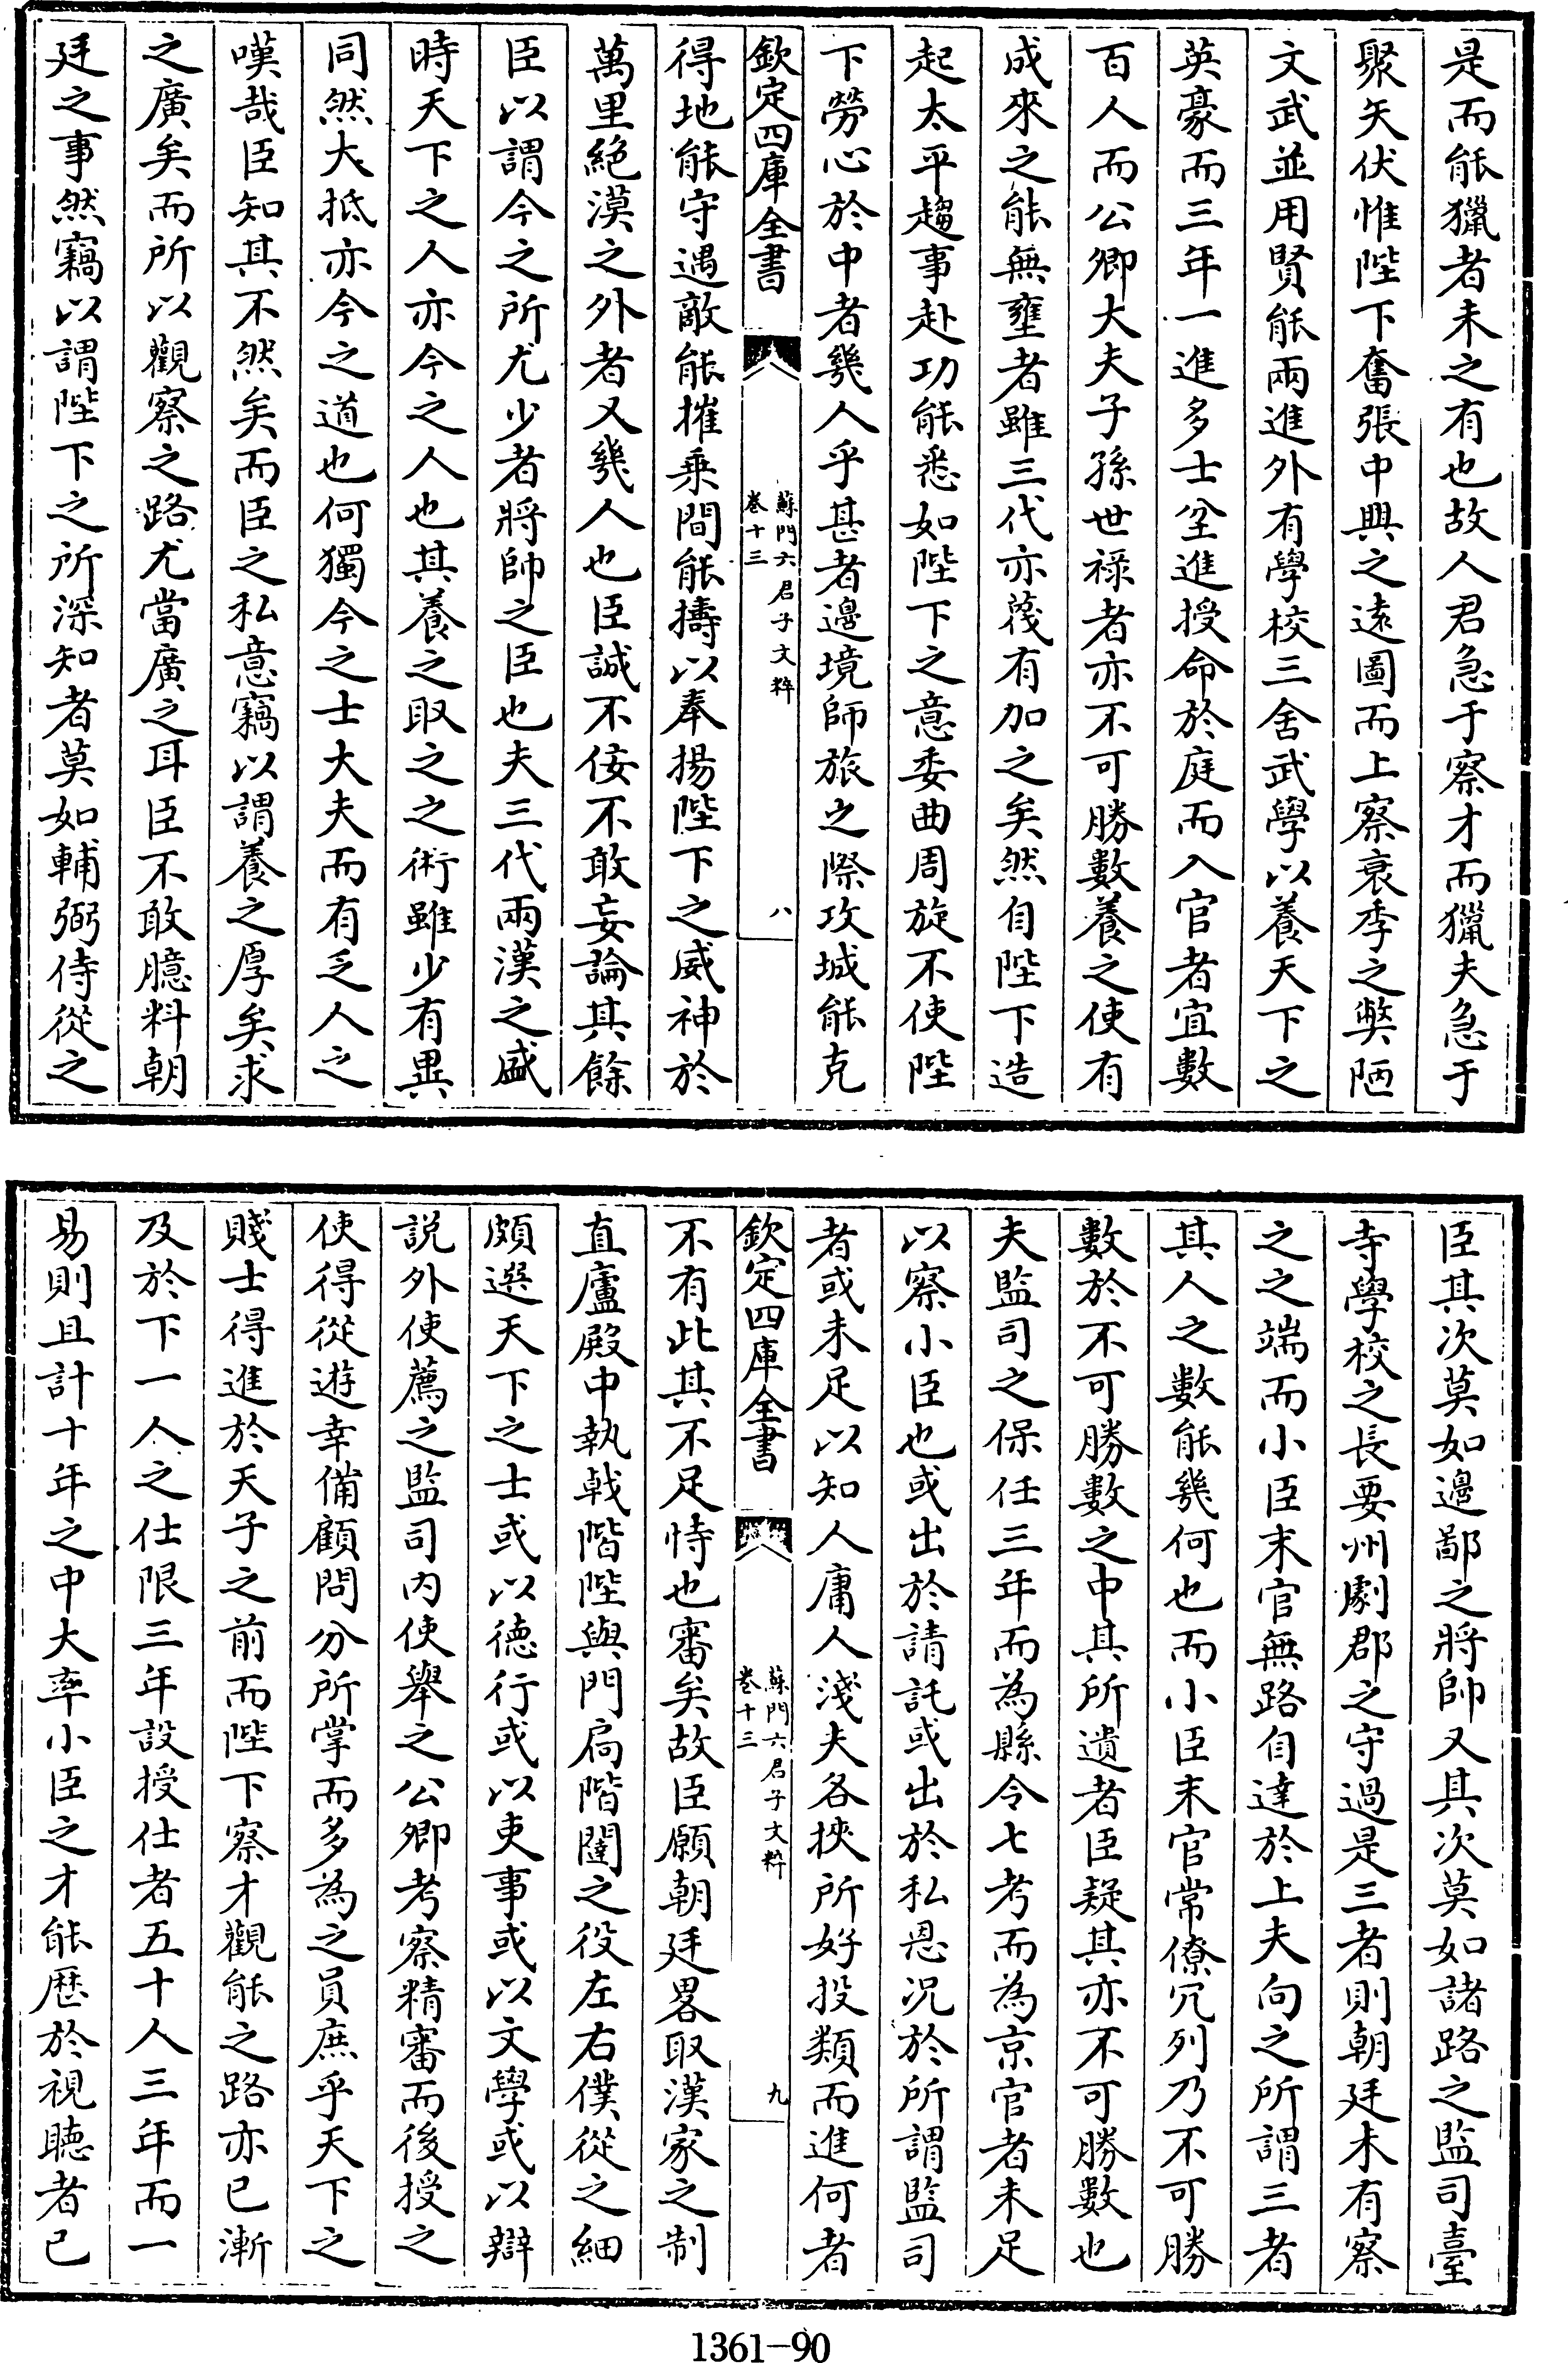 是而能獵者未之有也故人君急于察才而獵夫急于
聚矢伏惟陛下奮張中興之遠圖而上察衰季之弊陋
文武並用賢能兩進外有學校三舍武學以養天下之
英豪而三年一進多士坌進授命於庭而入官者宜數
百人而公卿大夫子孫世祿者亦不可勝數養之使有
成來之能無壅者雖三代亦蔑有加之矣然自陛下造
起太平趨事赴功能悉如陛下之意委曲周旋不使陛
下勞心於中者幾人乎甚者邊境師旅之際攻城能克
欽定四庫全書
蘇門六君子文粹
卷十三
八
得地能守遇敵能摧乗間能擣以奉揚陛下之威神於
萬里絶漠之外者又幾人也臣誠不佞不敢妄論其餘
臣以謂今之所尤少者將帥之臣也夫三代兩漢之盛
時天下之人亦今之人也其養之取之之術雖少有異
同然大抵亦今之道也何獨今之士大夫而有乏人之
嘆哉臣知其不然矣而臣之私意竊以謂養之厚矣求
之廣矣而所以觀察之路尤當廣之耳臣不敢臆料朝
廷之事然竊以謂陛下之所深知者莫如輔弼侍從之
臣其次莫如邊鄙之將帥又其次莫如諸路之監司臺
寺學校之長要州劇郡之守過是三者則朝廷未有察
之之端而小臣末官無路自達於上夫向之所謂三者
其人之數能幾何也而小臣末官常僚冗列乃不可勝
數於不可勝數之中其所遺者臣疑其亦不可勝數也
夫監司之保任三年而為縣令七考而為京官者未足
以察小臣也或出於請託或出於私恩况於所謂監司
者或未足以知人庸人淺夫各挾所好投類而進何者
欽定四庫全書
蘇門六君子文粹
卷十三
九
不有此其不足恃也審矣故臣願朝廷畧取漢家之制
直廬殿中執戟階陛與門扃階闥之役左右僕從之細
頗選天下之士或以德行或以吏事或以文學或以辯
説外使薦之監司内使舉之公卿考察精審而後授之
使得從遊幸備顧問分所掌而多為之員庶乎天下之
賤士得進於天子之前而陛下察才觀能之路亦已漸
及於下一人之仕限三年設授仕者五十人三年而一
易則且計十年之中大率小臣之才能歴於視聽者已
1361-90